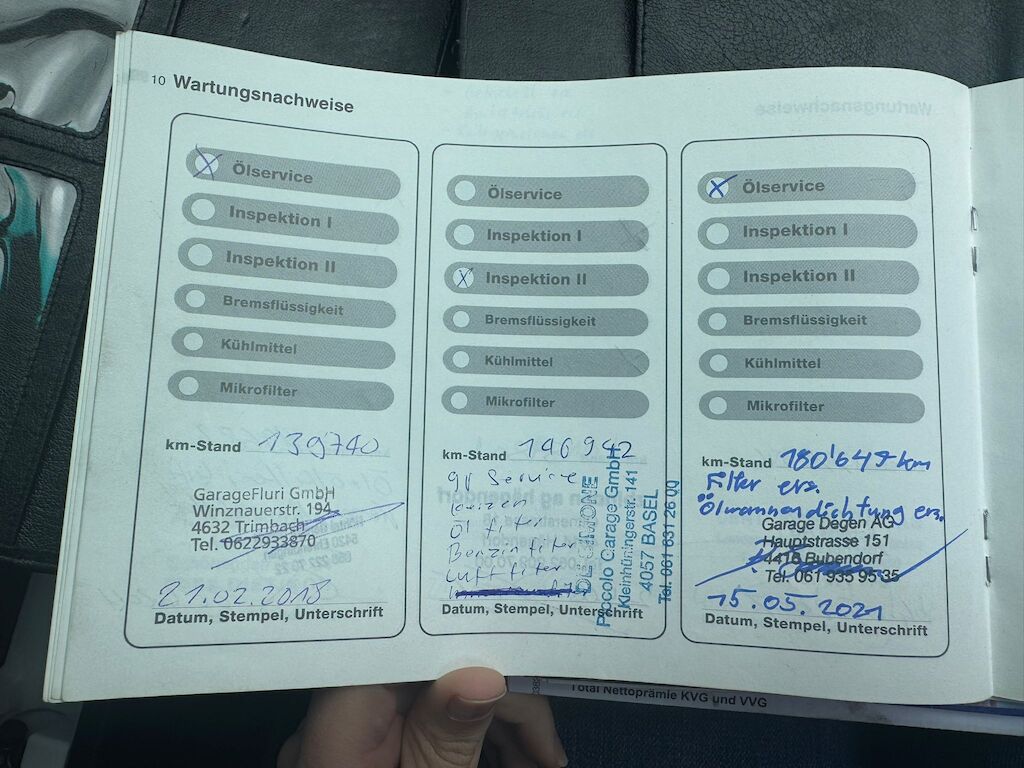 10 Wartungsnachweise
Ölservice
Inspektion I
Inspektion II
Bremsflüssigkeit
Kühlmittel
Mikrofilter
km-Stand 139740
GarageFluri GmbH
Winznauerstr. 194
4632 Trimbach
Tel. 0622933870
21.02.2018
Datum, Stempel, Unterschrift
Ölservice
Inspektion I
Inspektion II
Bremsflüssigkeit
Kühlmittel
Mikrofilter
km-Stand 146942
gr Service
Öl filter
Benzinfilter
Luftfilter
DE SIMONE
Piccolo Garage GmbH
Kleinhüningerstr. 141
4057 BASEL
Tel. 061 631 26 00
Datum, Stempel, Unterschrift
Ölservice
Inspektion I
Inspektion II
Bremsflüssigkeit
Kühlmittel
Mikrofilter
km-Stand 180'649 km
Filter ers.
Ölwannendichtung ers.
Garage Degen AG
Hauptstrasse 151
4416 Bubendorf
Tel. 061 935 95 35
15.05.2021
Datum, Stempel, Unterschrift
Total Nettoprämie KVG und VVG